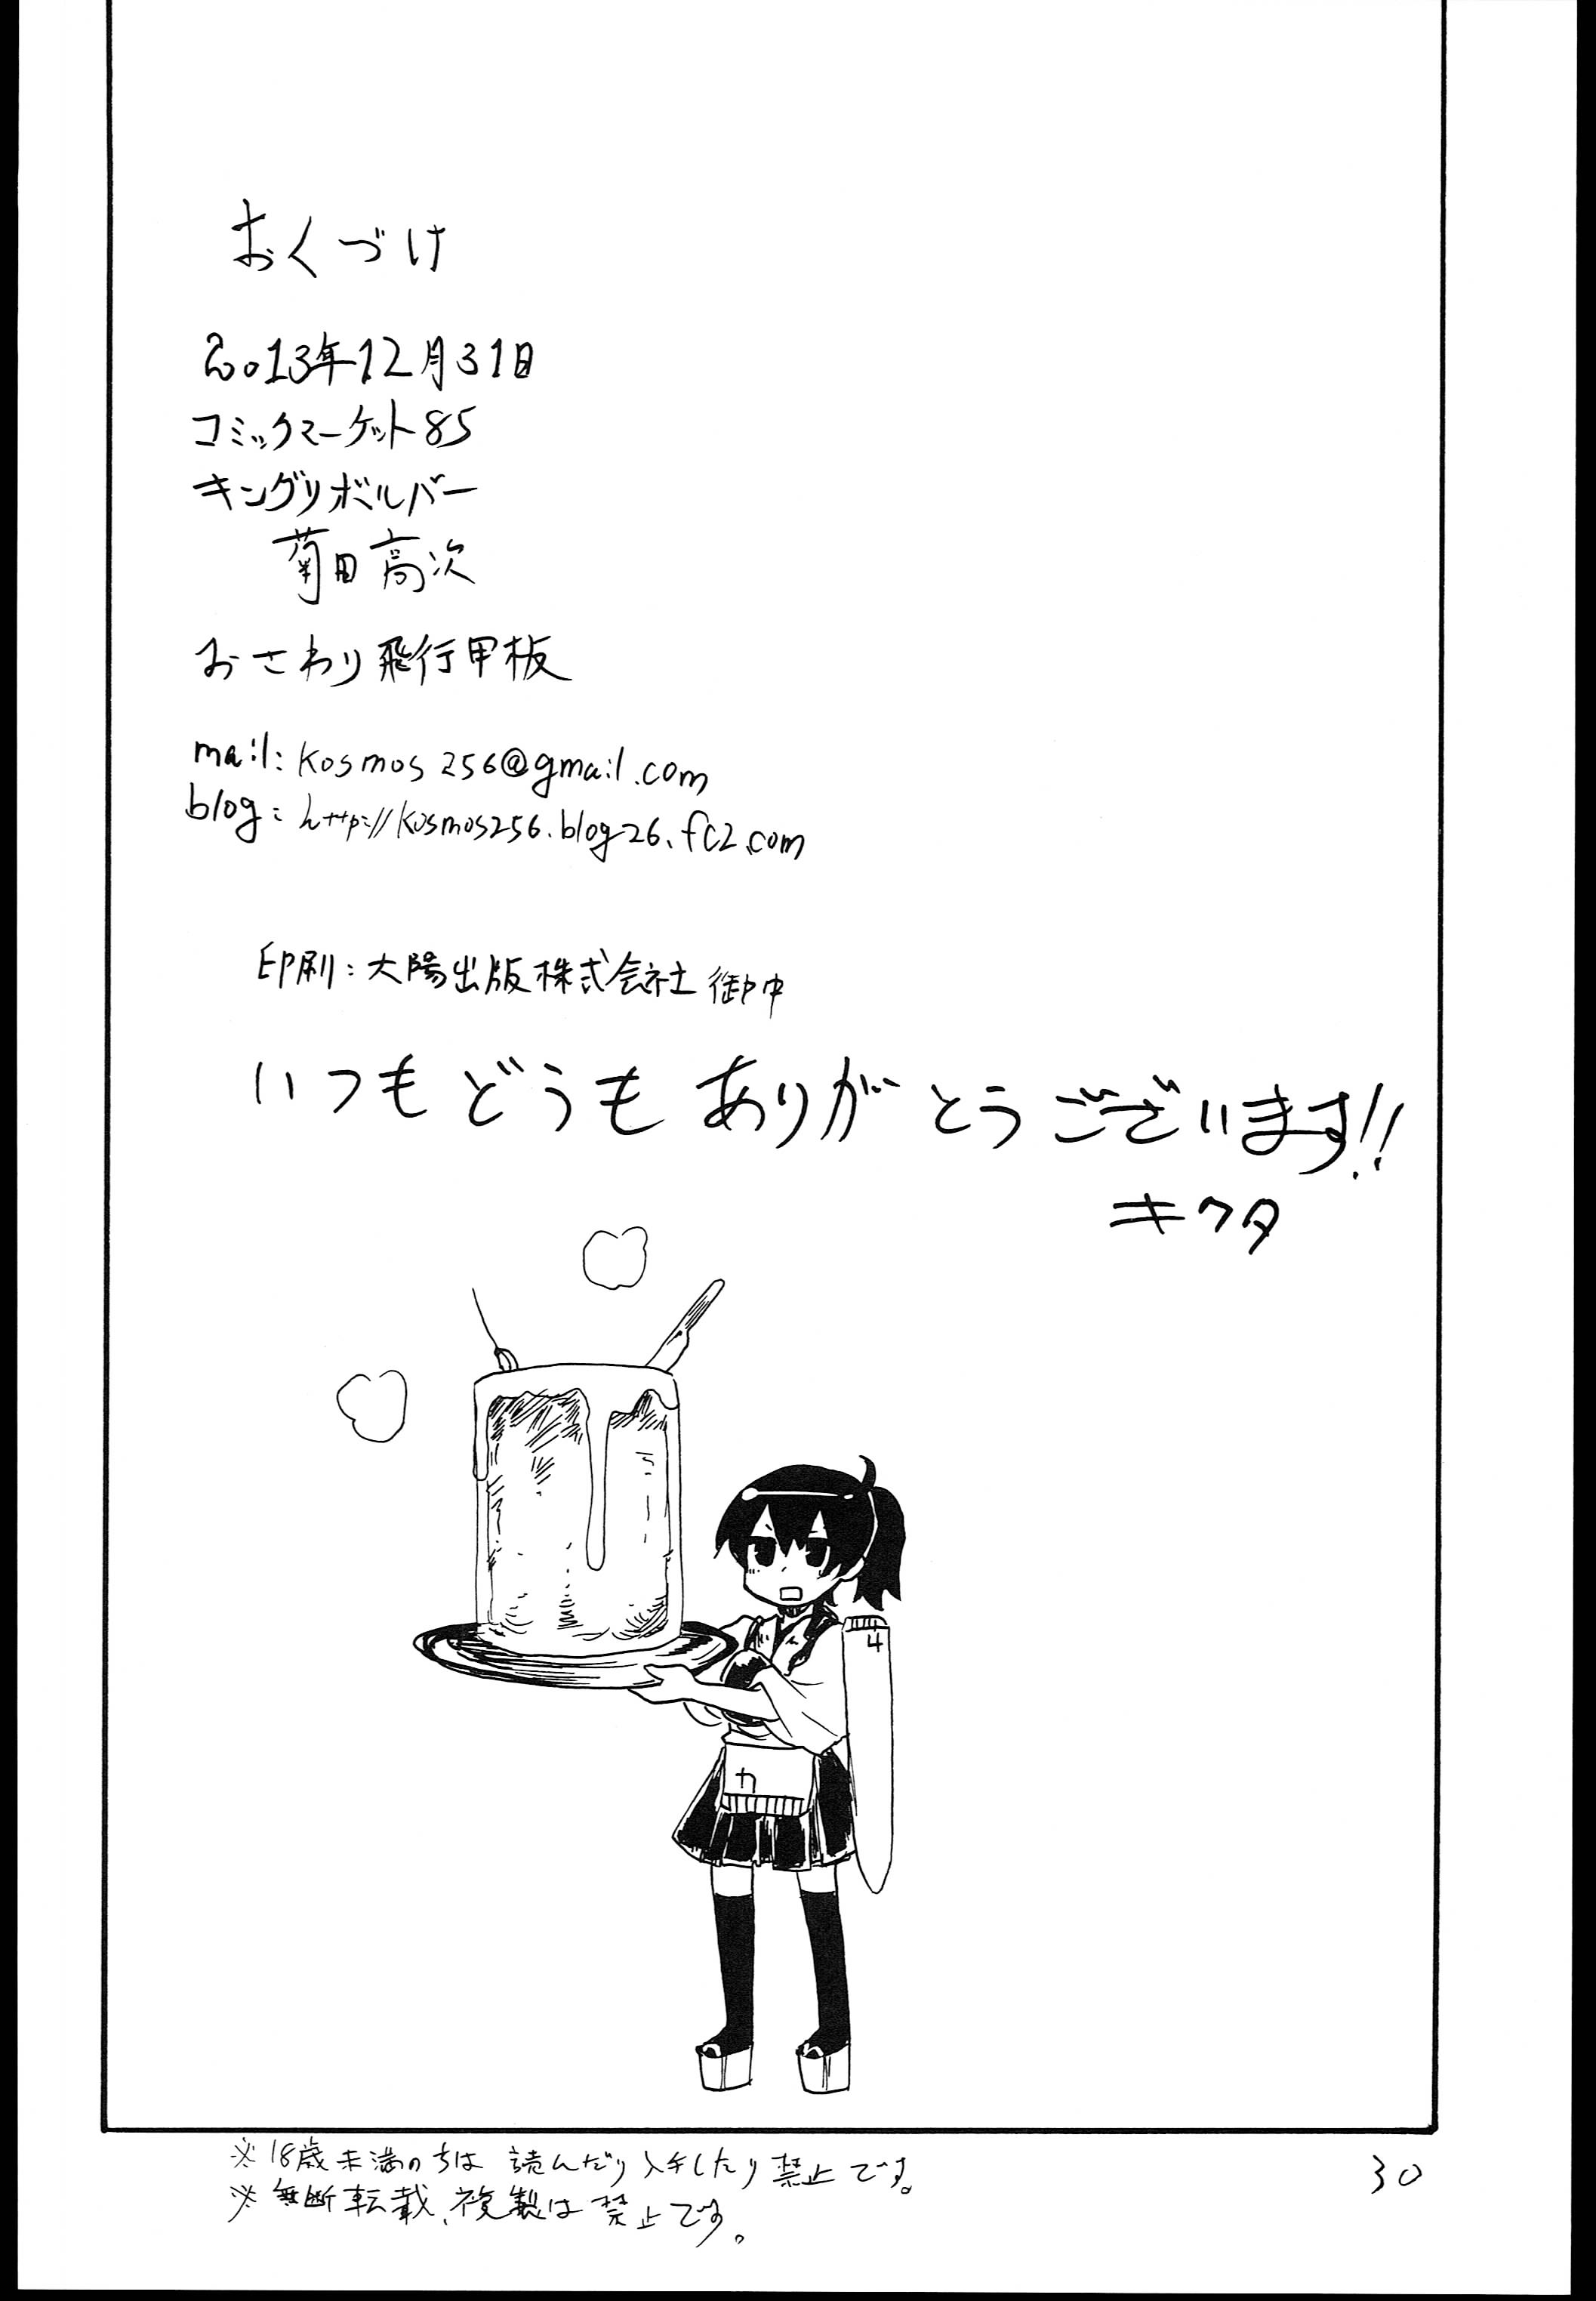 おくづけ
2013年12月31日
コミックマーケット85
キングリボルバー
菊田高次
おさわり飛行甲板
mail: kosmos256@gmail.com
blog: http://kosmos256.blog26.fc2.com
印刷: 大陽出版株式会社 御中
いつもどうもありがとうございます!!
キクタ
4
カ
※18歳未満の方は読んだり入手したり禁止です。
※無断転載、複製は禁止です。
30